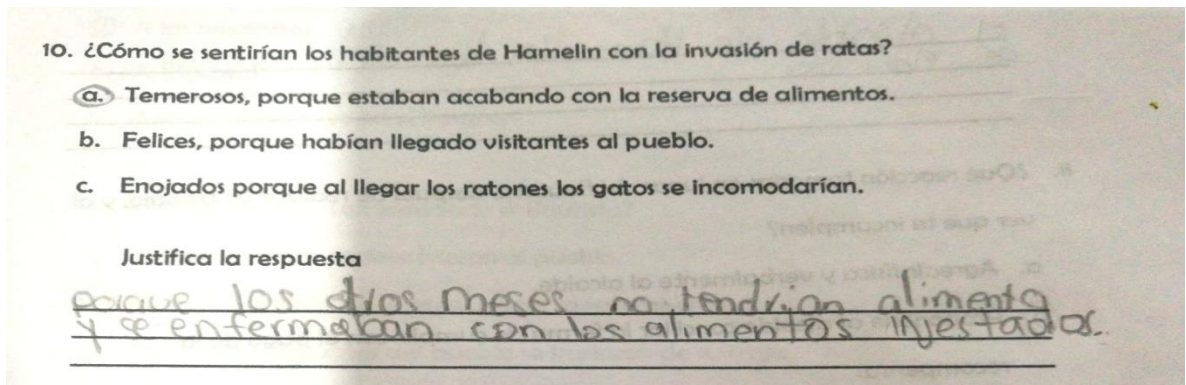 10. ¿Cómo se sentirían los habitantes de Hamelin con la invasión de ratas?
a. Temerosos, porque estaban acabando con la reserva de alimentos.
b. Felices, porque habían llegado visitantes al pueblo.
c. Enojados porque al llegar los ratones los gatos se incomodarían.
Justifica la respuesta
porque los otros meses no tendrian alimento
y se enfermaban con los alimentos injestados.